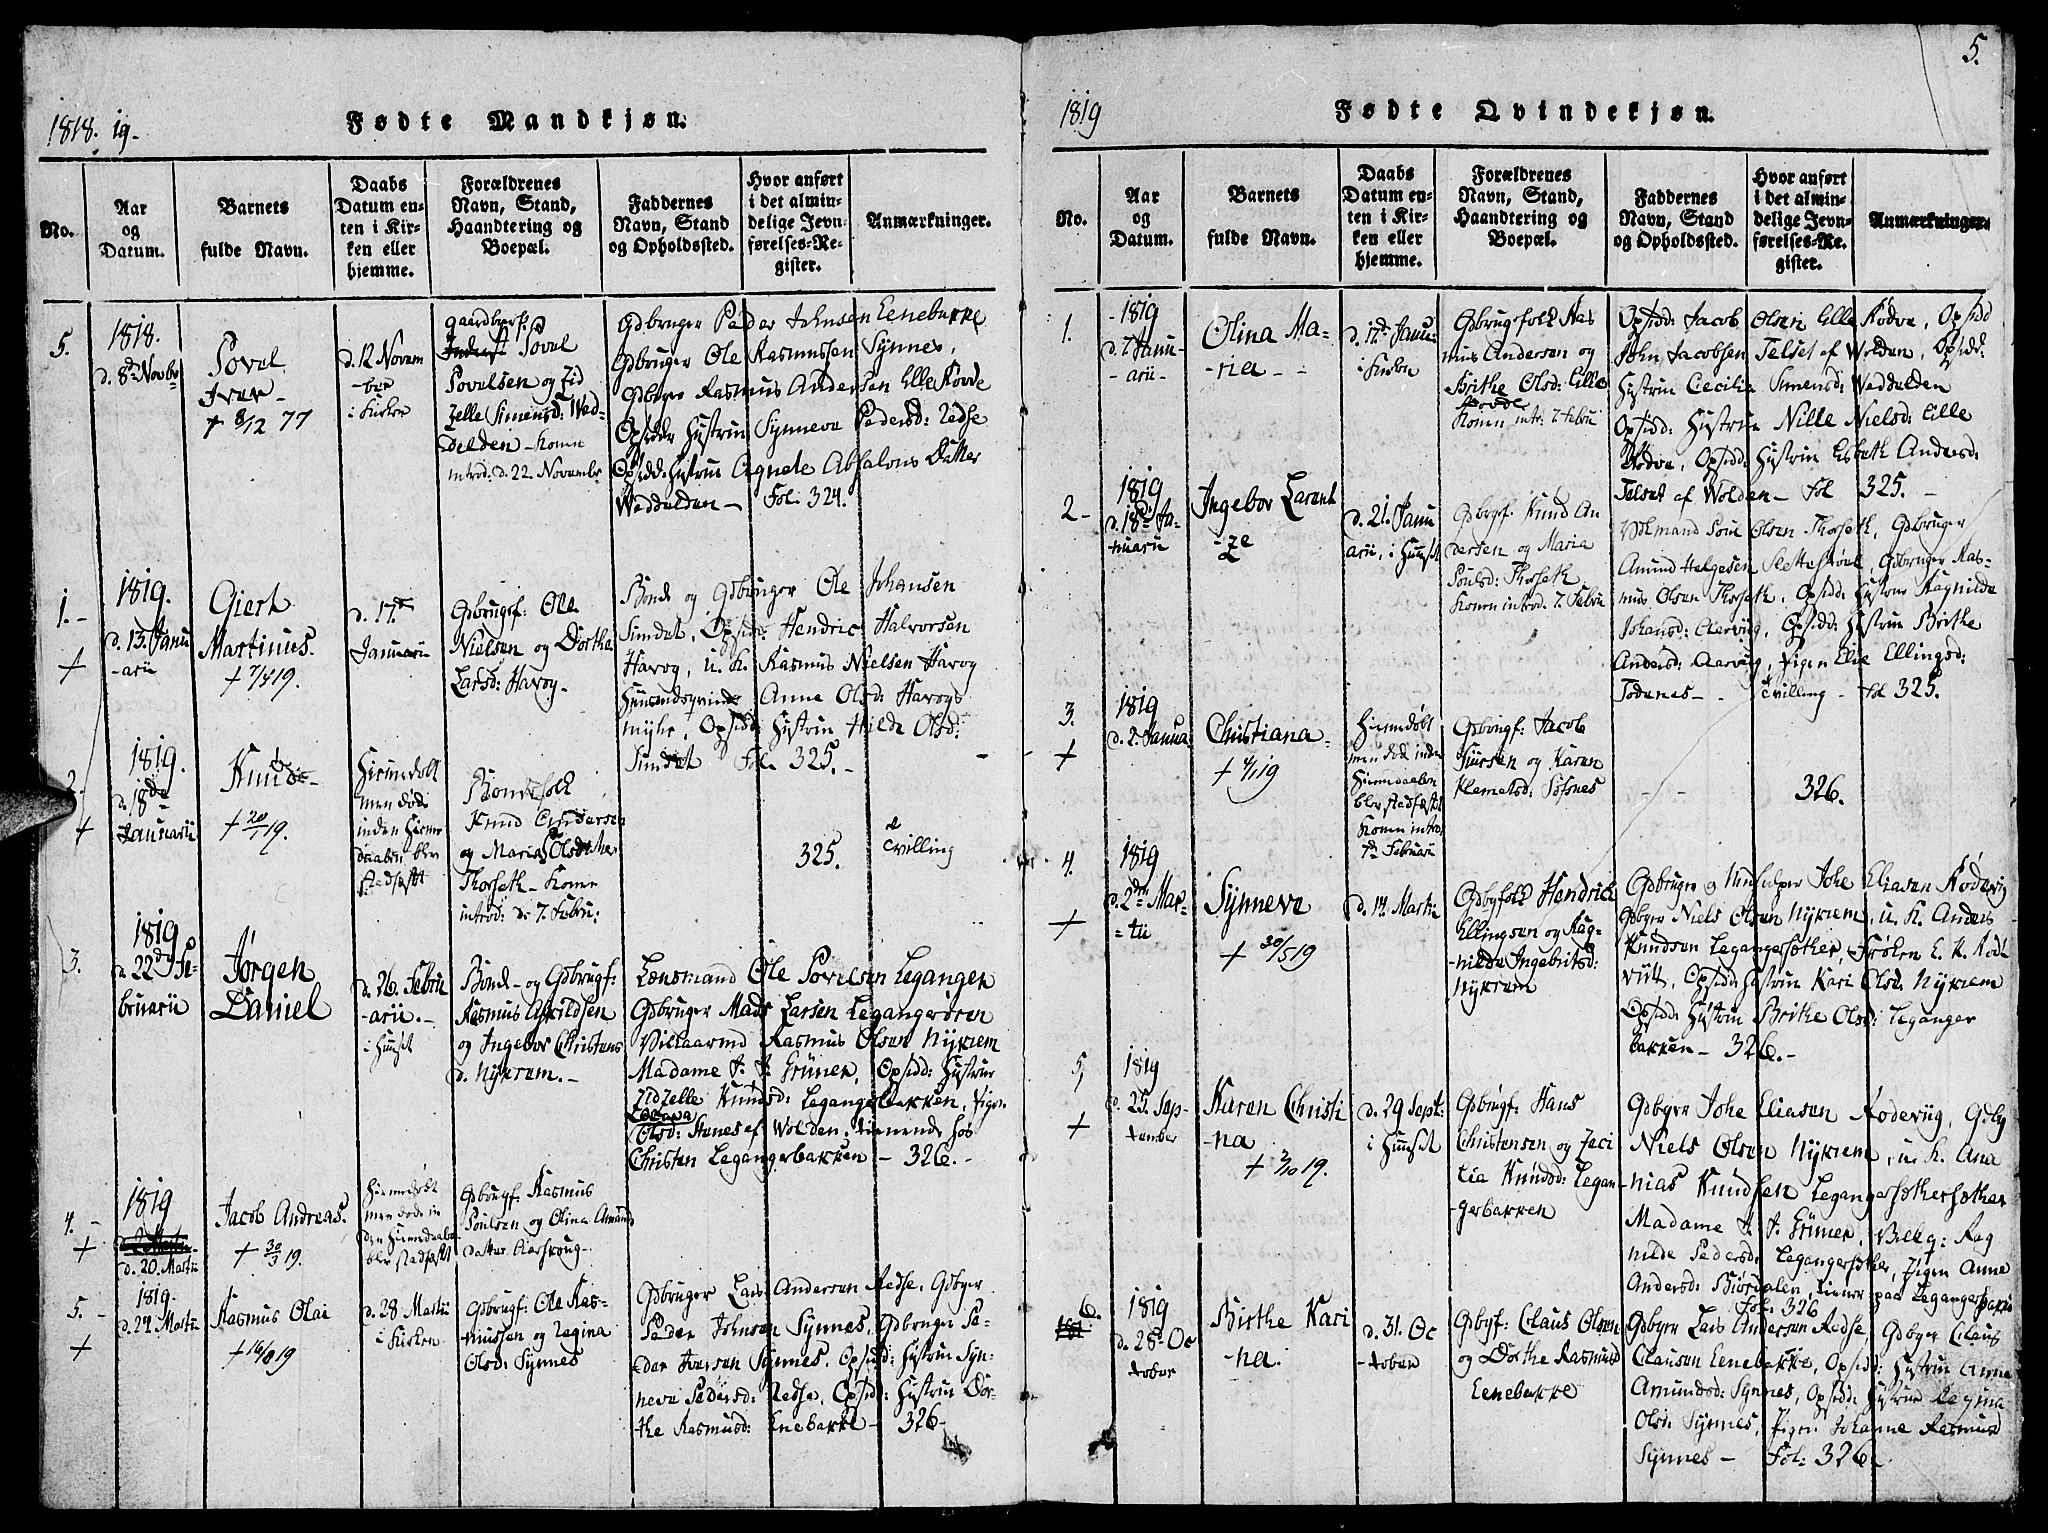 5.
1818. 19.
Fødte Mandkjøn.
No.
Aar
og
Datum.
Barnets
fulde Navn.
Daabs
Datum en-
ten i Kir-
ken eller
hjemme.
Forældrenes
Navn, Stand,
Haandtering og
Boepæl.
Faddernes
Navn, Stand
og Opholdssted.
Hvor anført
i det almin-
delige Jevn-
førelses-Re-
gister.
Anmærkninger.
5.
1818.
d. 8de Novbr
Povel
Iver -
+ 8/12 77
d. 12 Novem
-ber
i Kirken
gaardbrf:
Povel
Povelsen og Zid
zelle Simensd: Wed-
delden - Konen
introd: d. 22. Novembr
Gdbruger Peder Johnsen Eenebakke
Gdbruger Ole Rasmussen Synnes,
Gdbgre Rasmus Andersen Elle Rødve
Opsidder Hustrue Synneve Pedersd: Redse
Opsidd: Hustrue Agnete Absalons Datter
Weddelden - Fol. 324.
1. -
+
1819.
d. 13. Janu
-arii
Giert
Martinus.
+ 7/4 19.
d. 17de
Januarii
Gdbrugf: Ole
Nielsen og Dorthe
Larsd: Havog -
Bonde og Gdbruger Ole Johansen
Simdet, Opsidd: Hendric Halvorsen
Havog, u. K. Rasmus Nielsen Havog
Huusmdsqvinde Anne Olsd: Havogs
myhr, Opsidd: Hustrue Hilde Olsd:
Simdet Fol. 325. -
2.
+
1819.
d. 18de
Januarii
Knud -
+ 20/1 19.
Hiemdøbt
men døde
inden Hieme
daaben blev
stadfæstet
Bondefolk
Knud Andersen
og Maria Olsdatter
Thorseth - Konen
introd: d. 7. Febru:
325.
tvilling
3.
1819
d. 22de Fe-
bruarii
Jørgen
Daniel
d. 26. Febru
-arii. -
i Huuset
Bonde- og Gdbrugf:
Rasmus Aslildsen
og Ingebor Christens
d. Nykrem. -
Lensmand Ole Povelsen Leganger
Gdbruger Mads Larsen Legangerøren
Villaarmd Rasmus Olsen Nykrem
Madame J. J. Grüner, Opsidd: Hustrue
Zidzelle Knudsd: Legangerbakken, Pigen
Olsd: Stenes af Wolden, tienende hos
Christen Legangerbakken - 326. -
4. -
+
1819
d. 20. Martii
Jacob Andreas.
+ 30/3 19.
Hiemedøbt
men døde in
den Hiemdaabn
blev stadfæstet
Gdbrugf: Rasmus
Poulsen og Olina Amund
datter Aarskoug -
5. -
+
1819.
d. 24. Martii
Rasmus Olai
+ 16/8 19
d. 28 Martii
i Kirken
Gdbrugf: Ole Ras-
mussen og Regina
Olsd: Synnes
Gdbruger Lars Andersen Redse, Gdbger
Peder Johnsen Synnes, Gdbruger Pe-
der Iversen Synnes, Opsidd: Hustrue Syn-
neve Pedersd: Redse, Opsidd: Hustrue Dor-
the Rasmusd: Enebakke - 326 -
1819
Fødte Qvindekjøn.
No.
Aar
og
Datum.
Barnets
fulde Navn.
Daabs
Datum en-
ten i Kir-
ken eller
hjemme.
Forældrenes
Navn, Stand,
Haandtering og
Boepæl.
Faddernes
Navn, Stand
og Opholdssted.
Hvor anført
i det almin-
delige Jevn-
førelses-Re-
gister.
Anmærkninger.
1.
1819
d. 7 Janu-
-arii
Olina Ma-
-ria - -
d. 17de Janu-
i Kirken
Gdbrugsfolk Ras
mus Andersen og
Brithe Olsd: Elle
Rødve
Konen intr: 7. Febru
Opsidd: Jacob Olsen Elle Rødve, Opsidd
John Jacobsen Telset af Wolden, Opsidd:
Hustrue Cecilia Simensd: Weddelden
Opsidd: Hustrue Nille Nielsd: Elle
Rødve, Opsidd: Hustrue Lisbeth Andersd:
Telset af Wolden - Fol 325. -
2 -
1819
d. 18de Ja-
nuarii
Ingebor Larent
-ze
d. 21. Janu
arii, i Huuset
Gdbrgf. Knud An
dersen og Maria
Poulsd: Thorseth
Konen introd. 7. Febru
Volmand Poul Olsen Thorseth, Gdbruger
Amund Helgesen Slettestøel, Gdbruger Ras-
mus Olsen Thorseth, Opsidd: Hustrue Ragnilde
Johansd: Aarvug, Opsidd: Hustrue Brithe
Andersd: Aarvug, Pigen Elie Ellingsd:
Todenes - - tvilling - Fol 325.
3.
+
1819
d. 2. Janua
Christiana -
+ 4/1 19
Hiemdøbt
men død inden
Hiemdaaben
blev stadfæstet
Konen introd
7de Februarii
Gdbrugf: Jacob
Siursen og Karen
Klemetsd: Sosnes
- -
326.
4.
+
1819
d. 2den Mar-
-tii
Synneve
+ 30/5 19
d. 14. Martii
Gdbgfolk Hendrick
Ellingsen og Rag-
nilde Ingebritsd:
Nykrem
Gdbruger og Johe Eliasen Rødevig
Gdbgr Niels Olsen Nykrem, u. K. Anders
Knudsen Legangersæther, Frøken E. K. Röd
vütt, Opsidd: Hustrue Kari Olsd: Nykrem
Opsidd: Hustrue Brithe Olsd: Leganger
bakken - 326. -
5,
+
1819
d. 25. Sep-
tember
Karen Christi
-na
+ 2/10 19.
d. 29 Sept:
i Huuset
Gdbrugf: Hans
Christensen og Zeci
lia Knudsd: Legan-
gerbakken
Gdbgre Johe Eliasen Rødevüg, Gdbg
Niels Olsen Nykrem, u. K. Ana
nias Knudsen Legangersæther
Madame J. J. Grüner, Rag
nilde Pedersd: Legangersæther, Pigen Anne
Andersd: Biørdalen, tiener paa Legangersbakke
Fol: 326
6.
1819
d. 28de Oc
tober
Birthe Kari
-na.
d. 31. Oc
-tober
Gdbgf: Claus Olsen
og Dorthe Rasmusd
Eenebakke
Gdbger Lars Andersen Redse, Gdbger Claus
Clausen Eenebakke, Opsidd: Hustrue Anne
Amundsd: Synnes, Opsidd: Hustrue Regina
Olsd: Synnes, Pigen Johanne Rasmusd
Synnes - Fol: 326.